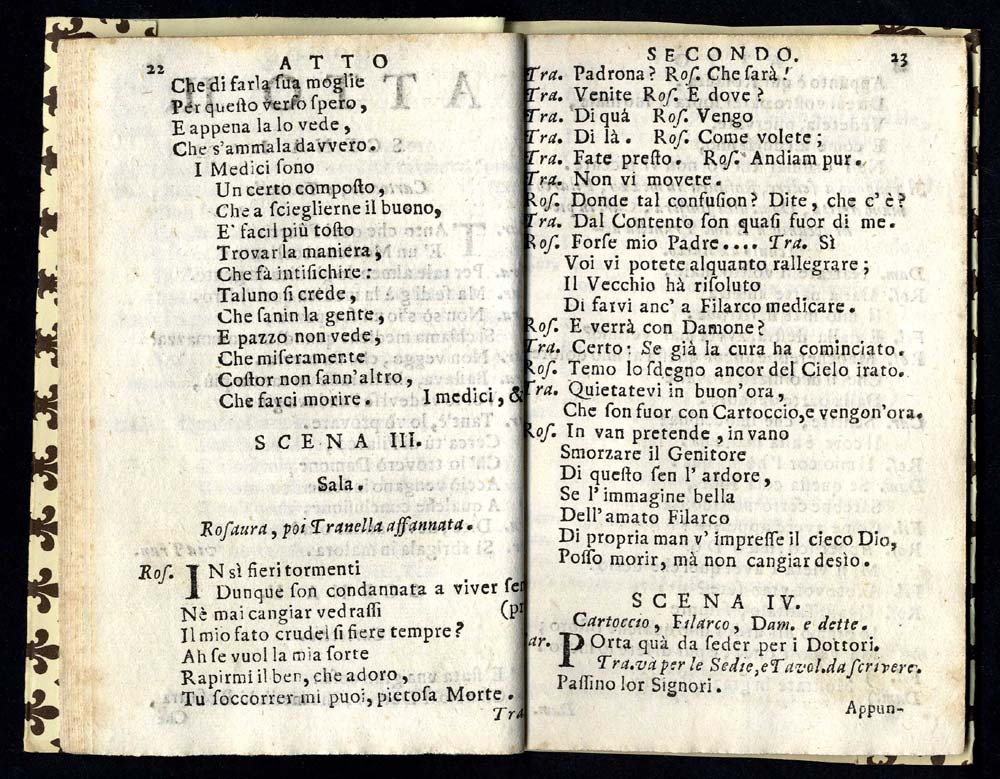 22 ATTO
Che di farla ſua moglie
Per queſto verſo ſpero,
E appena la lo vede,
Che s'ammala davvero.
I Medici ſono
Un certo compoſto,
Che a ſcieglierne il buono,
E' facil più toſto
Trovar la maniera,
Che fà intiſichire:
Taluno ſi crede,
Che ſanin la gente,
E pazzo non vede,
Che miſeramente
Coſtor non ſann'altro,
Che farci morire. I medici, &
SCENA III.
Sala.
Roſaura, poi Tranella affannata.
Roſ. IN sì fieri tormenti
Dunque ſon condannata a viver ſem
Nè mai cangiar vedraſſi (pr
Il mio fato crudel ſi fiere tempre?
Ah ſe vuol la mia ſorte
Rapirmi il ben, che adoro,
Tu ſoccorrer mi puoi, pietoſa Morte.
Tra
SECONDO. 23
Tra. Padrona? Roſ. Che ſarà!
Tra. Venite Roſ. E dove?
Tra. Di quà Roſ. Vengo
Tra. Di là. Roſ. Come volete;
Tra. Fate preſto. Roſ. Andiam pur.
Tra. Non vi movete.
Roſ. Donde tal confuſion? Dite, che c'è?
Tra. Dal Contento ſon quaſi fuor di me.
Roſ. Forſe mio Padre.... Tra. Sì
Voi vi potete alquanto rallegrare;
Il Vecchio hà riſoluto
Di farvi anc' a Filarco medicare.
Roſ. E verrà con Damone?
Tra. Certo: Se già la cura ha cominciato.
Roſ. Temo lo ſdegno ancor del Cielo irato.
Tra. Quietatevi in buon'ora,
Che ſon fuor con Cartoccio, e vengon'ora.
Roſ. In van pretende, in vano
Smorzare il Genitore
Di queſto ſen l' ardore,
Se l' immagine bella
Dell'amato Filarco
Di propria man v' impreſſe il cieco Dio,
Poſſo morir, mà non cangiar desìo.
SCENA IV.
Cartoccio, Filarco, Dam. e dette.
ar. POrta quà da ſeder per i Dottori.
Tra. va per le Sedie, e Tavol. da ſcrivere.
Paſſino lor Signori.
Appun-